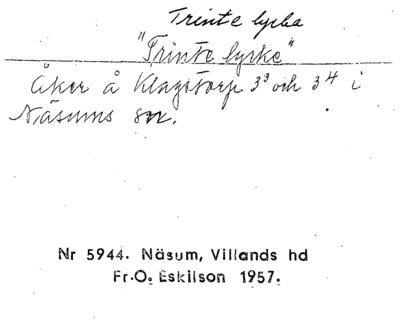 Trinte lycka
"Trinte lyrke"
Åker å Klagstorp 3³ och 3⁴ i
Näsums sn.
Nr 5944. Näsum, Villands hd
Fr.O. Eskilson 1957.